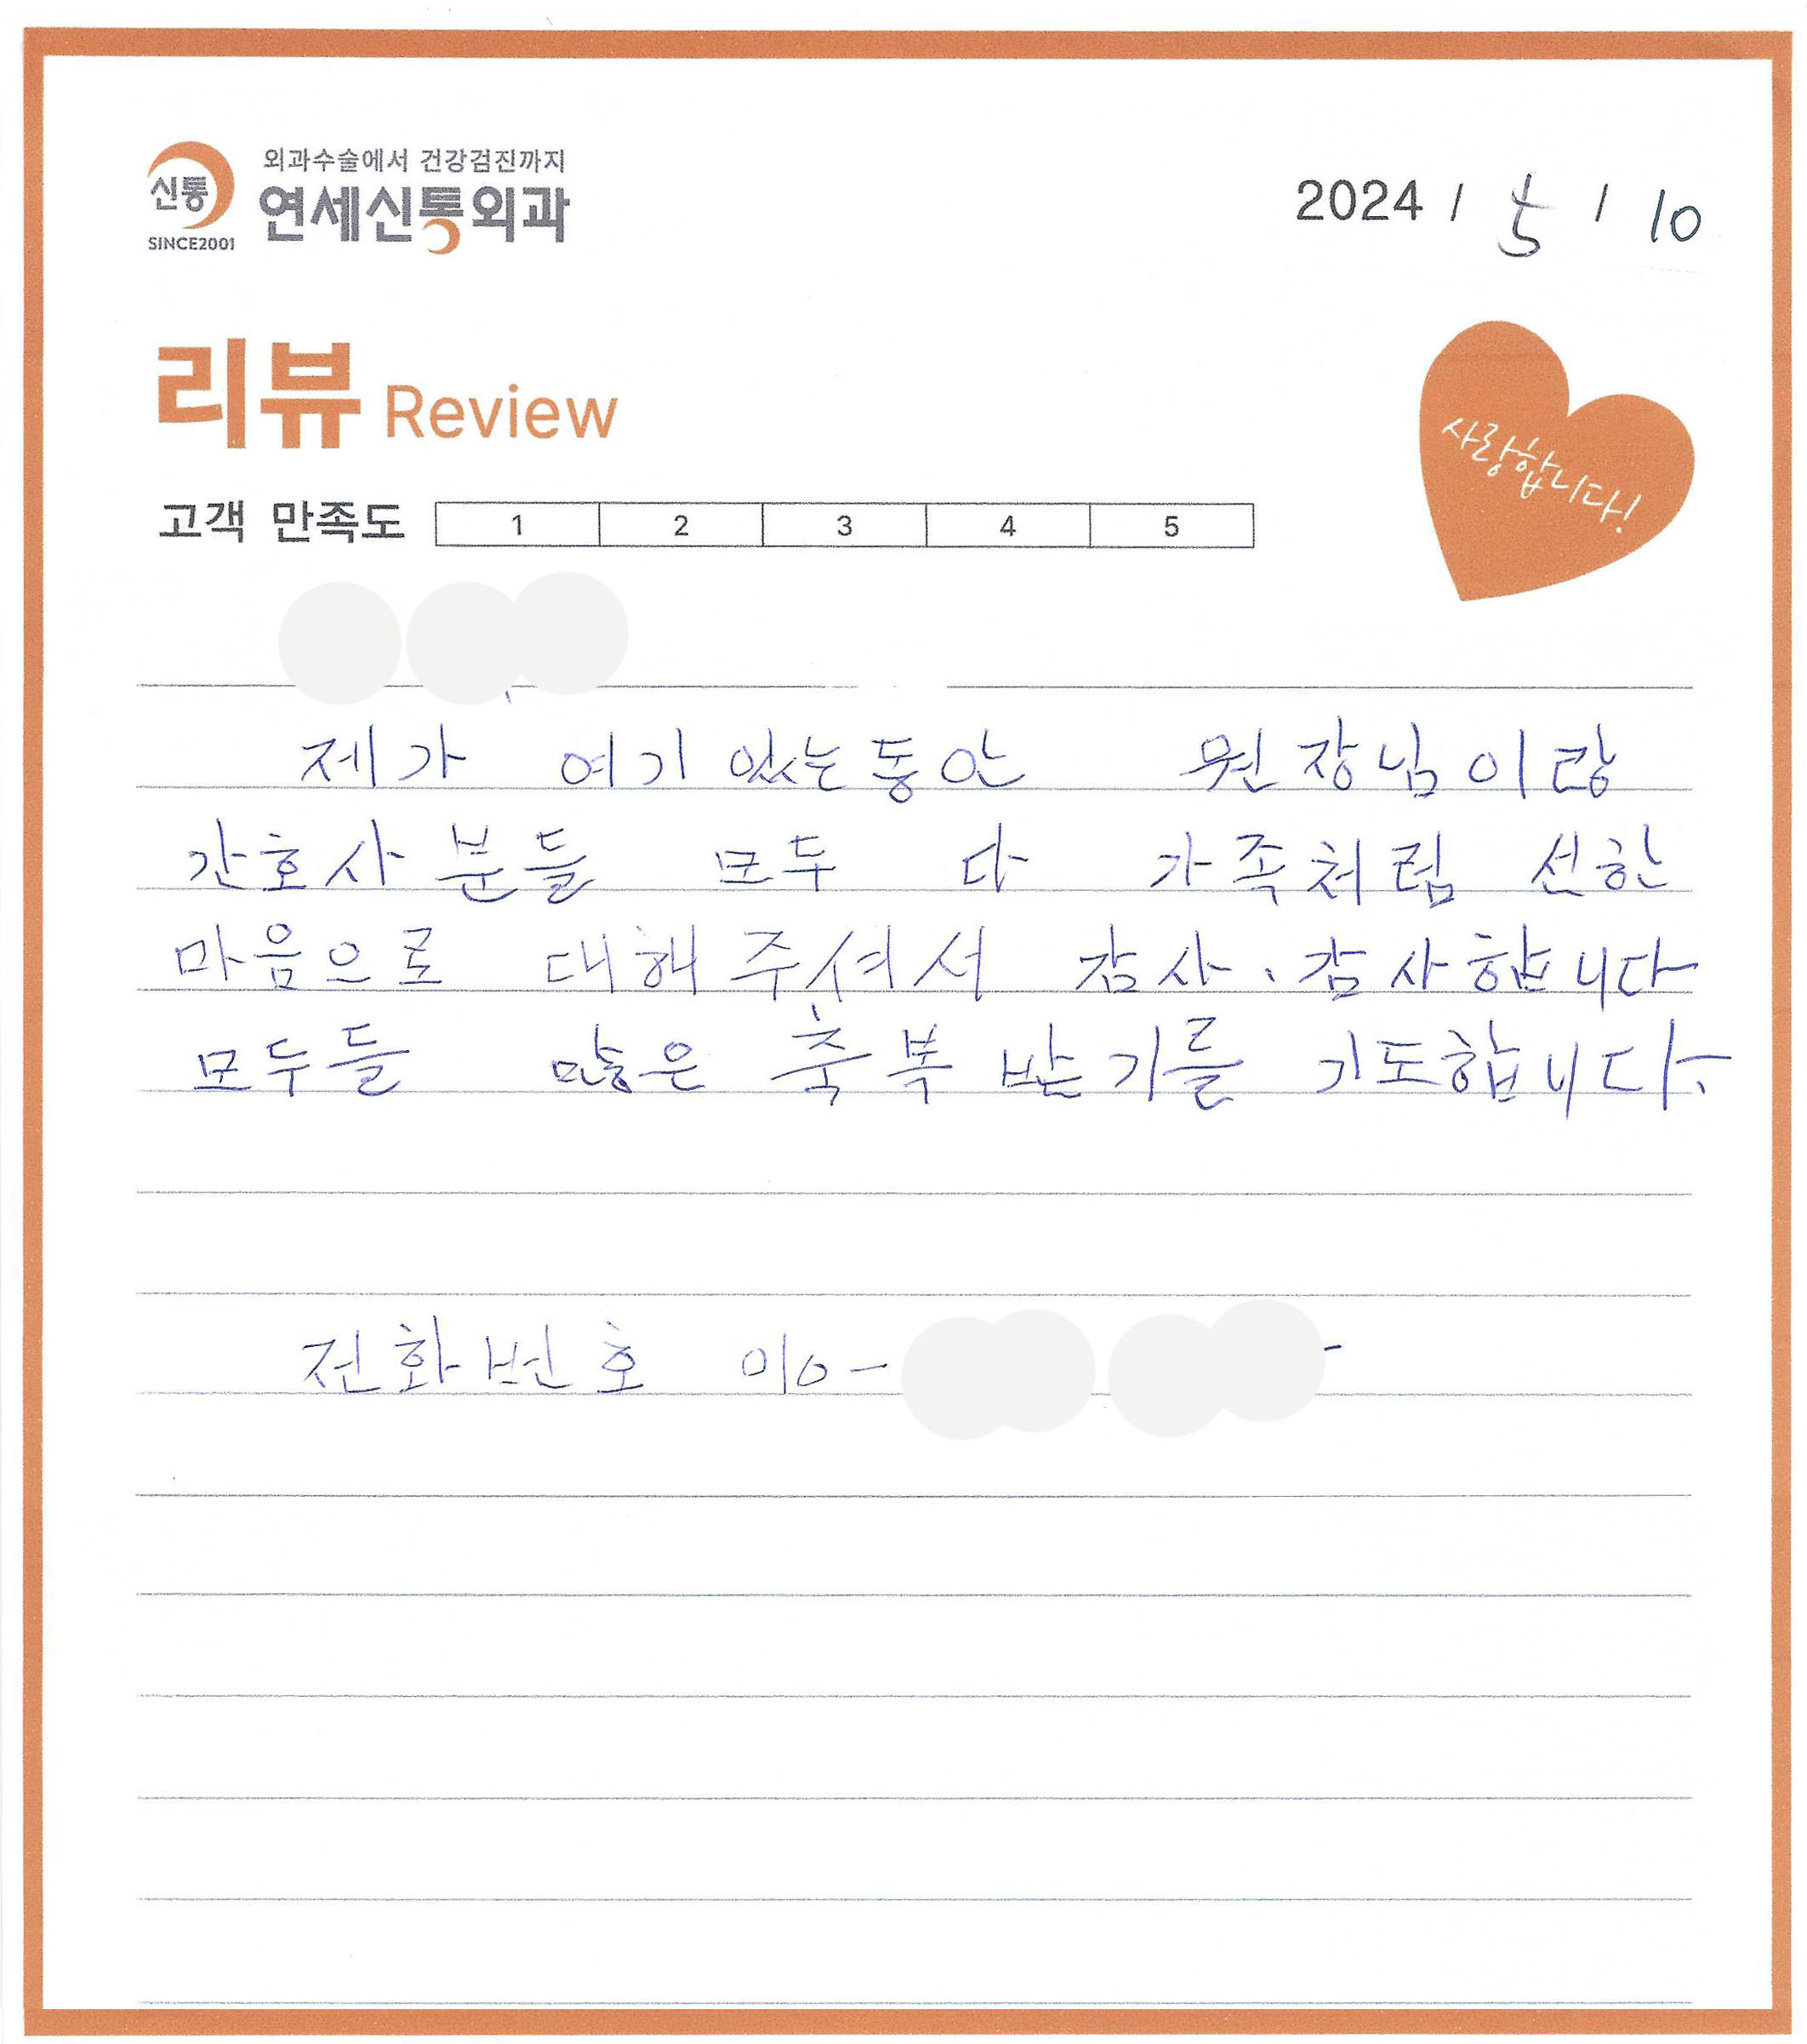 외과수술에서 건강검진까지
신통
연세신통외과
SINCE2001
2024 / 5 / 10
리뷰 Review
사랑합니다!
고객 만족도 1 2 3 4 5
제가 여기 있는동안 원장님이랑
간호사분들 모두 다 가족처럼 선한
마음으로 대해주셔서 감사. 감사합니다
모두들 많은 축복받기를 기도합니다.
전화번호 010-